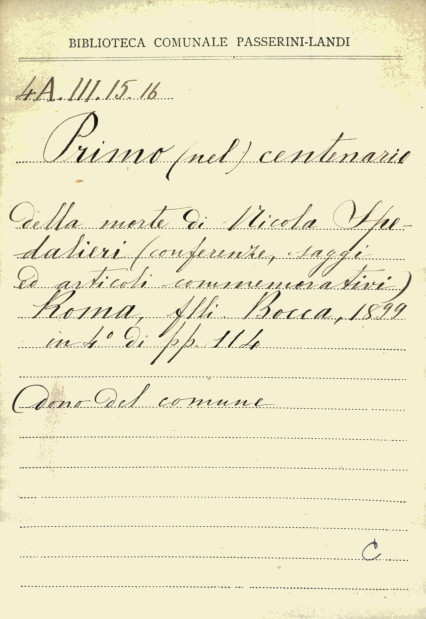 BIBLIOTECA COMUNALE PASSERINI-LANDI
4A.III.15.16
Primo (nel) centenario
della morte di Nicola Spe-
dalieri (conferenze, saggi
ed articoli commemorativi)
Roma, flli Bocca, 1899
in 4° di pp. 114
(dono del comune
C